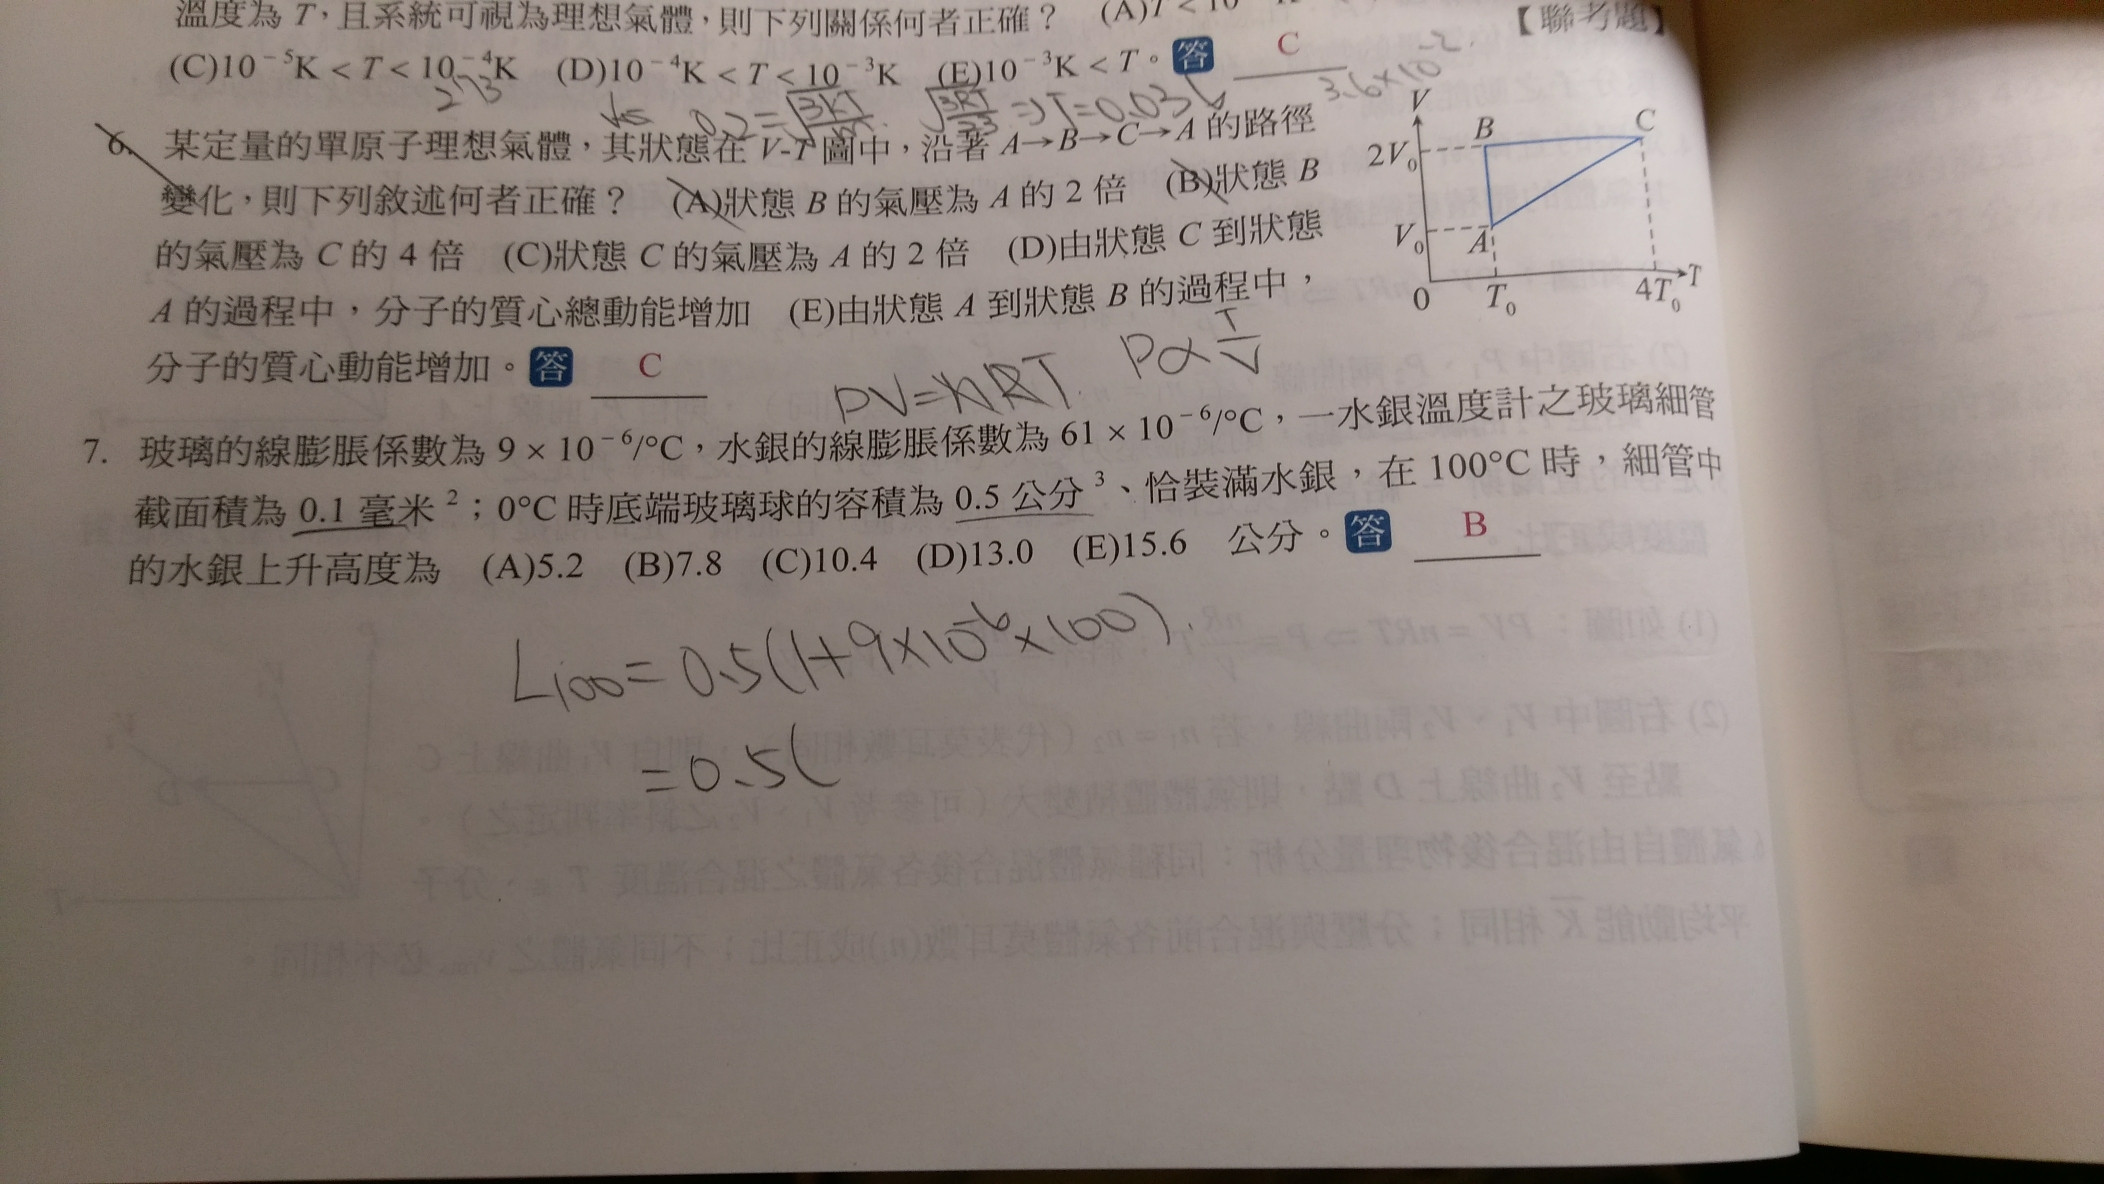 溫度為 T，且系統可視為理想氣體，則下列關係何者正確？ (A)T < 10 【聯考題】
(C)10⁻⁵K < T < 10⁻⁴K (D)10⁻⁴K < T < 10⁻³K (E)10⁻³K < T。答 C
273 0.2=√3kT/m √3RT ⇒T=0.036 3.6×10⁻².
6. 某定量的單原子理想氣體，其狀態在 V-T 圖中，沿著 A→B→C→A 的路徑
變化，則下列敘述何者正確？ (A)狀態 B 的氣壓為 A 的 2 倍 (B)狀態 B
的氣壓為 C 的 4 倍 (C)狀態 C 的氣壓為 A 的 2 倍 (D)由狀態 C 到狀態
A 的過程中，分子的質心總動能增加 (E)由狀態 A 到狀態 B 的過程中，
分子的質心動能增加。答 C
V
B C
2V₀
V₀ A
0 T₀ 4T₀ T
PV=nRT. P∝T/V
7. 玻璃的線膨脹係數為 9 × 10⁻⁶/°C，水銀的線膨脹係數為 61 × 10⁻⁶/°C，一水銀溫度計之玻璃細管
截面積為 0.1 毫米²；0°C 時底端玻璃球的容積為 0.5 公分³、恰裝滿水銀，在 100°C 時，細管中
的水銀上升高度為 (A)5.2 (B)7.8 (C)10.4 (D)13.0 (E)15.6 公分。答 B
L₁₀₀=0.5(1+9×10⁻⁶×100).
=0.5(